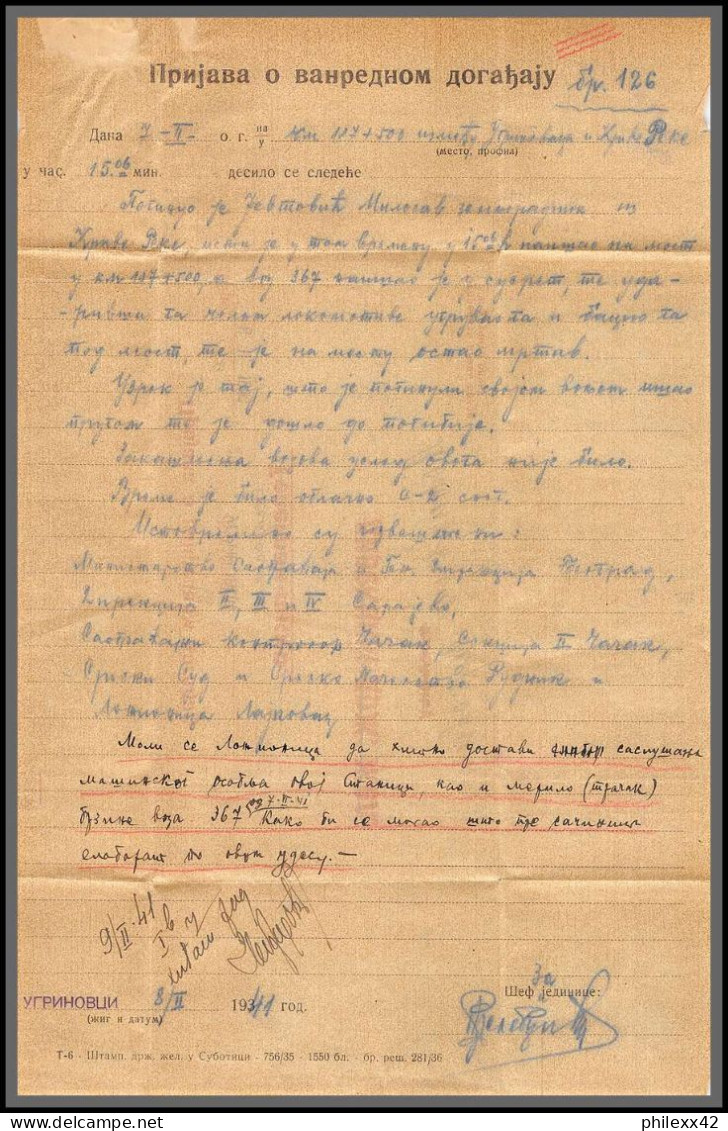 Пријава о ванредном догађају бр. 126
Дана 7-II- о. г. на/у км 187+500 између Угриноваца и Криве Реке
(место, профил)
у час. 15.06 мин. десило се следеће
Погинуо је Јевтовић Милосав земљорадник из
Криве Реке, исти је у том времену у 15.06 h наишао на мост
у км 187+500, а воз 367 наишао је у сусрет, те уда-
-ривши га челом локомотиве угрувао га и бацио га
под мост, те је на месту остао мртав.
Узрок је тај, што је погинули својом вољом ишао
пругом те је дошло до погибије.
Закашњења возова услед овога није било.
Време је било облачно 0-2 
Истовремено су извештени:
Министарство Саобраћаја и Ген. Дирекција Београд,
Дирекција II, III и IV Сарајево,
Саобраћајни контролор Чачак, Секција II Чачак,
Срески Суд и Среско Начелство Рудник и
Ложионица Лајковац
Моли се Ложионица да хитно достави саслушања
машинског особља овој Станици, као и мерило (трачак)
брзине воза 367 од 7-II-41 Како би се могао што пре сачинити
елаборат по овом удесу.-
9/II-41
УГРИНОВЦИ 8/II 1941 год.
(жиг и датум)
За
Шеф јединице:
Т-6 - Штамп. држ. жел. у Суботици - 756/35 - 1550 бл. - бр. реш. 281/36
philexx42